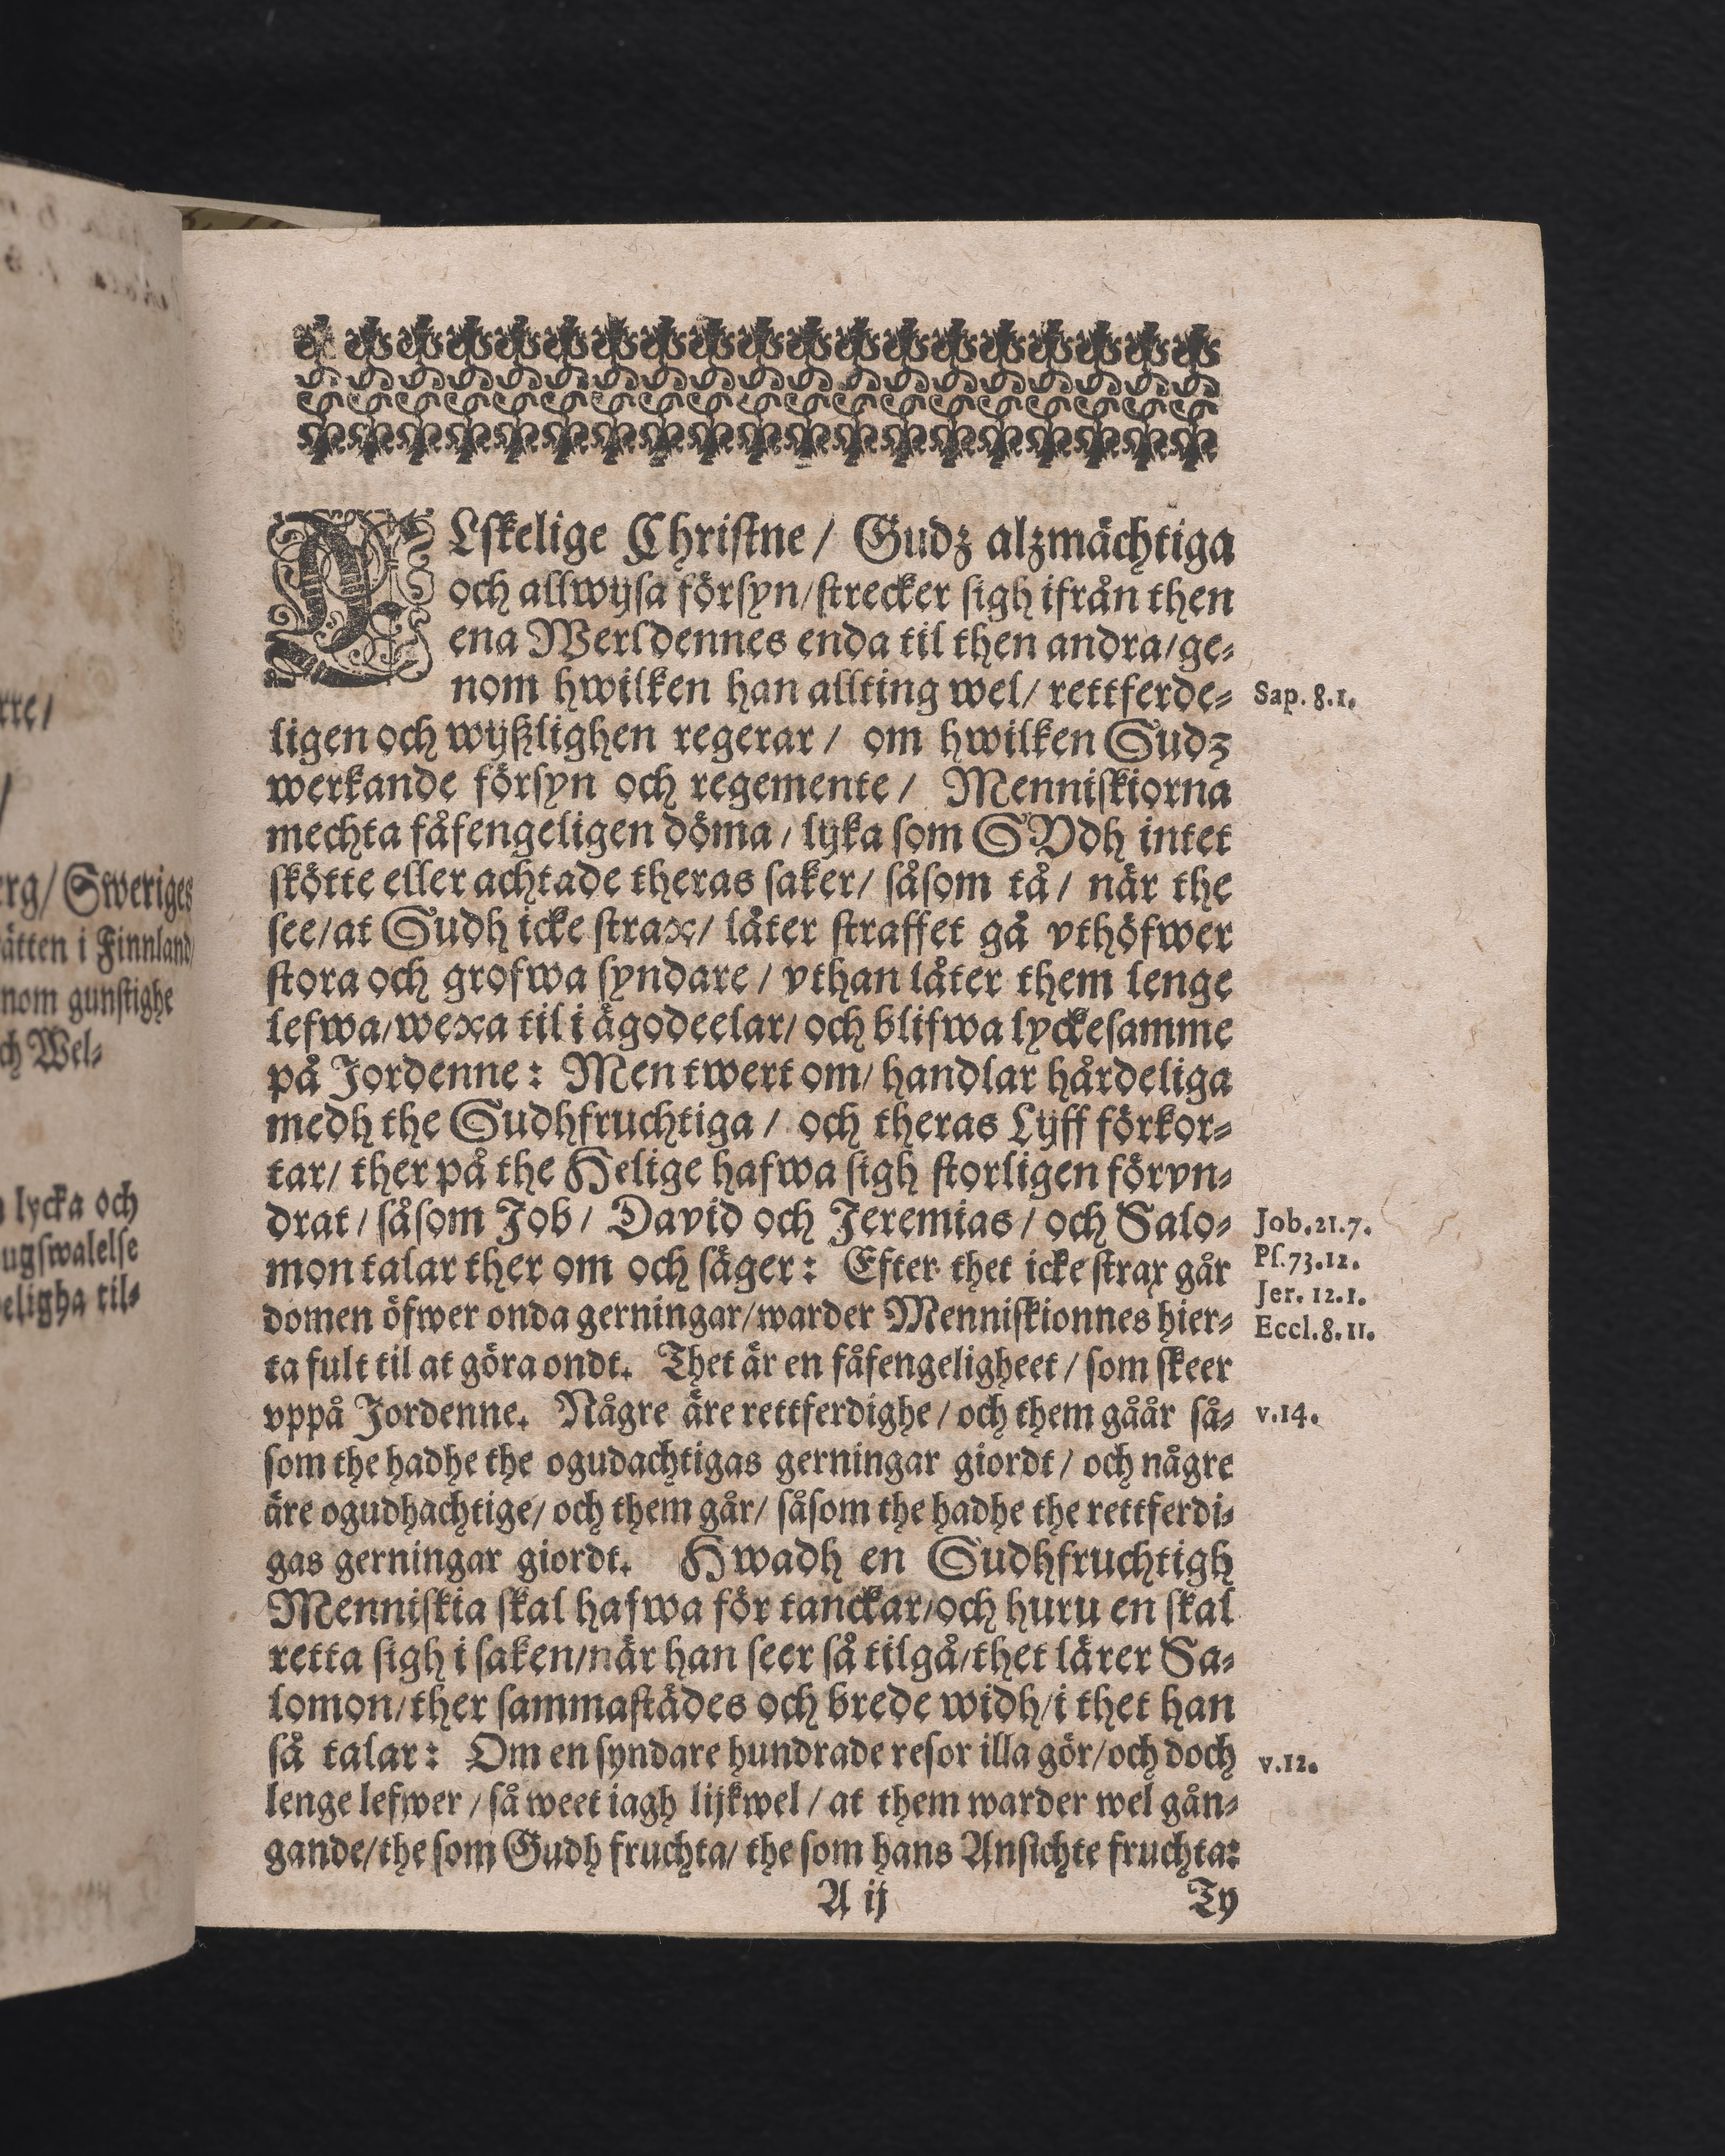 rre/
/
erg/ Sweriges
ätten i Finnland/
nom gunstighe
ch Wel-
lycka och
ugswalelse
eligha til-
ÄLskelige Christne/ Gudz alzmächtiga
och allwijsa försyn/ strecker sigh ifrån then
ena Werldennes enda til then andra/ ge-
nom hwilken han allting wel/ rettferde-
Sap. 8.1.
ligen och wijßlighen regerar/ om hwilken Gudz
werkande försyn och regemente/ Menniskiorna
mechta fåfengeligen döma/ lijka som GVdh intet
skötte eller achtade theras saker/ såsom tå/ när the
see/ at Gudh icke strax/ låter straffet gå vthöfwer
stora och grofwa syndare/ vthan låter them lenge
lefwa/ wexa til i ägodeelar/ och blifwa lyckesamme
på Jordenne: Men twert om/ handlar hårdeliga
medh the Gudhfruchtiga/ och theras Lijff förkor-
tar/ ther på the Helige hafwa sigh storligen förvn-
drat/ såsom Job/ David och Jeremias/ och Salo-
Job.21.7.
mon talar ther om och säger: Efter thet icke strax går
Ps.73.12.
Jer. 12.1.
domen öfwer onda gerningar/ warder Menniskionnes hier-
Eccl.8.11.
ta fult til at göra ondt. Thet är en fåfengeligheet/ som skeer
vppå Jordenne. Någre äre rettferdighe/ och them gåår så-
v.14.
som the hadhe the ogudachtigas gerningar giordt/ och någre
äre ogudhachtige/ och them går/ såsom the hadhe the rettferdi-
gas gerningar giordt. Hwadh en Gudhfruchtigh
Menniskia skal hafwa för tanckar/ och huru en skal
retta sigh i saken/ när han seer så tilgå/ thet lärer Sa-
lomon/ ther sammastädes och brede widh/ i thet han
så talar: Om en syndare hundrade resor illa gör/ och doch
v.12.
lenge lefwer/ så weet iagh lijkwel/ at them warder wel gån-
gande/ the som Gudh fruchta/ the som hans Ansichte fruchta:
A ij
Ty